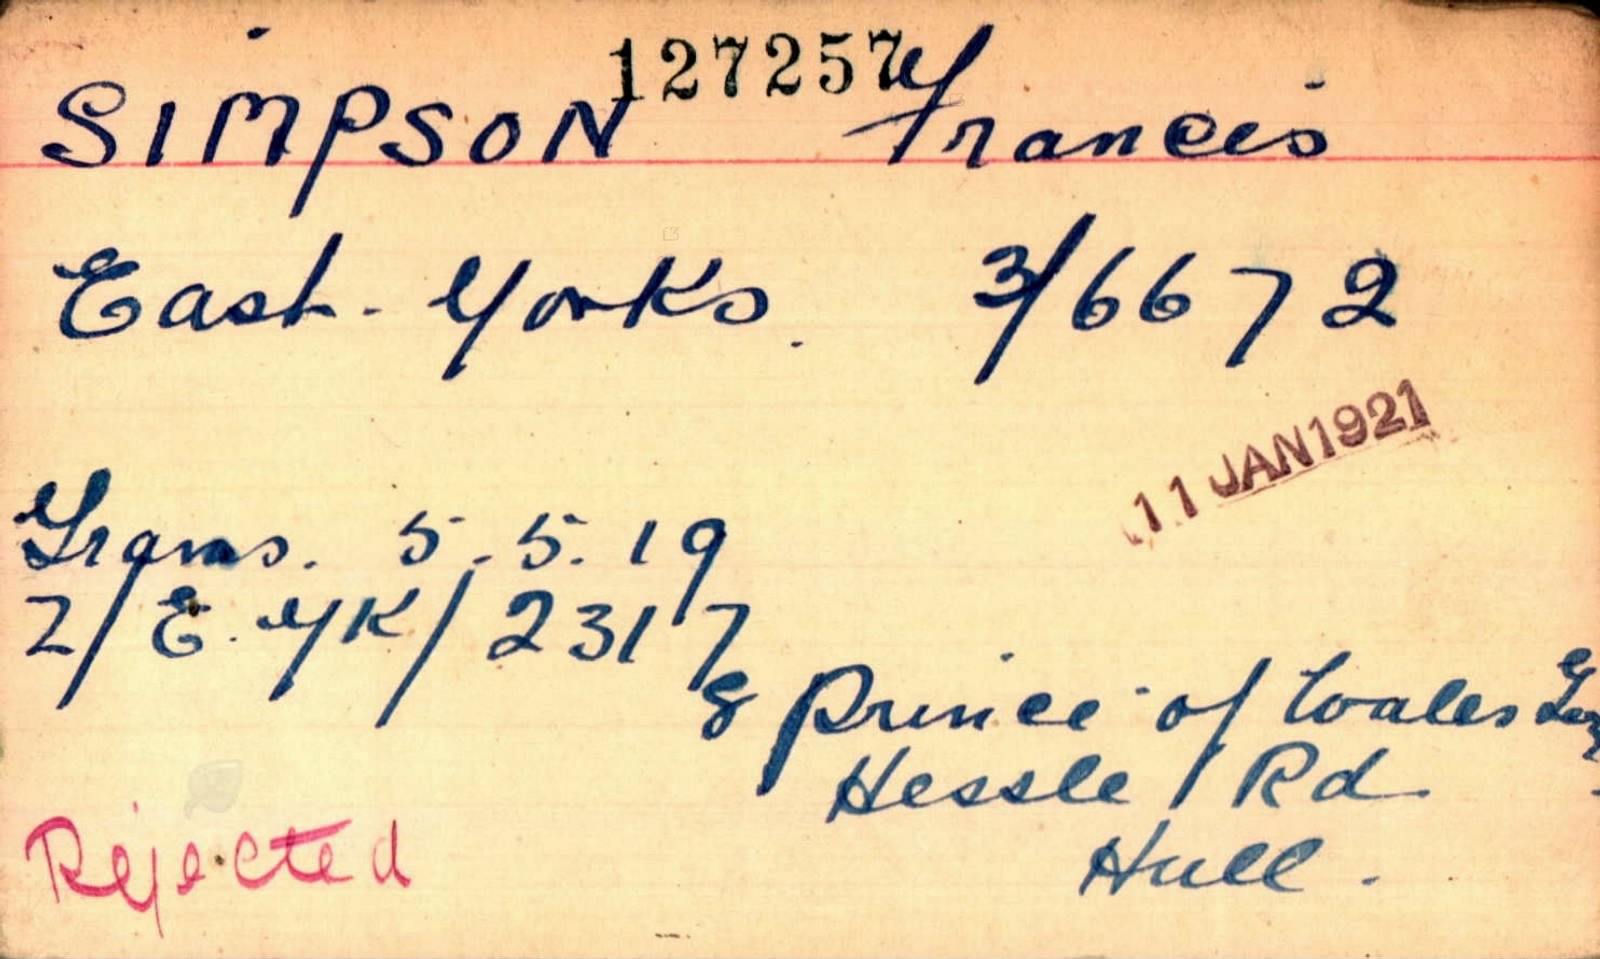 127257
SIMPSON Francis
East. Yorks. 3/6672
11 JAN 1921
Trans. 5.5.19
Z/E.YK/2317
8 Prince of Wales
Hessle Rd
Hull.
Rejected